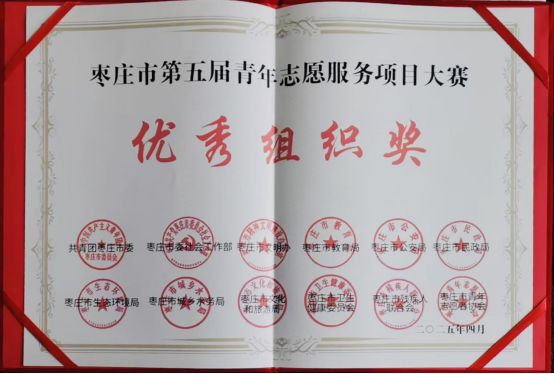 枣庄市第五届青年志愿服务项目大赛
优秀组织奖
共青团枣庄市委 枣庄市委社会工作部 枣庄市文明办 枣庄市教育局 枣庄市公安局 枣庄市民政局
枣庄市生态环境局 枣庄市城乡水务局 枣庄市文化和旅游局 枣庄市卫生健康委员会 枣庄市残疾人联合会 枣庄市青年志愿者协会
二〇二五年四月